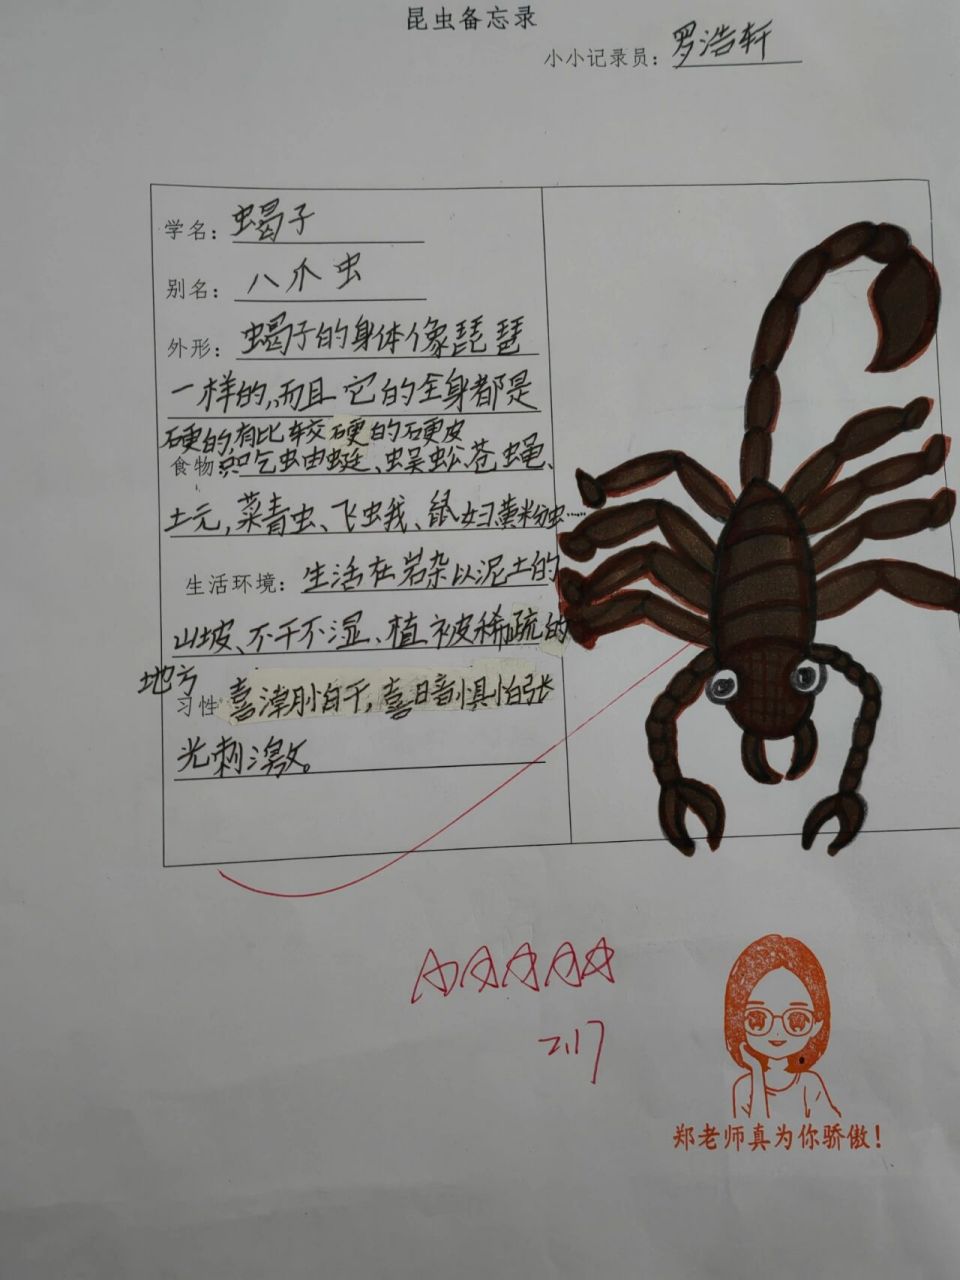 昆虫备忘录
小小记录员：罗浩轩
学名：蝎子
别名：八爪虫
外形：蝎子的身体像琵琶
一样的,而且它的全身都是
硬的,有比较硬的硬皮
食物：吃虫曲蜓、蜈蚣、苍蝇、
土元,菜青虫、飞虫我、鼠妇黄粉虫……
生活环境：生活在岩杂以泥土的
山坡、不干不湿、植被稀疏的
地方
习性：喜潮怕干,喜暗惧怕强
光刺激。
2.17
郑老师真为你骄傲！